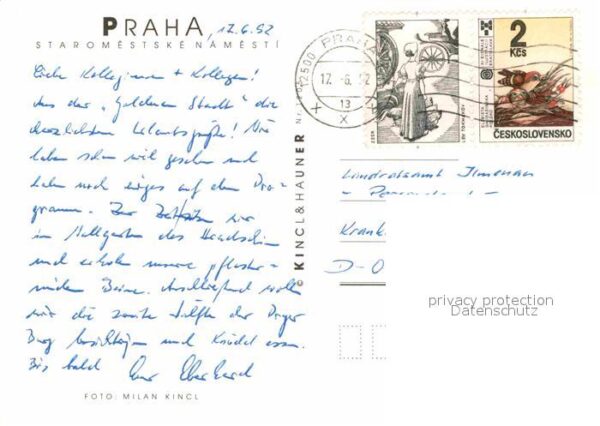 PRAHA 12.6.92
STAROMĚSTSKÉ NÁMĚSTÍ
Liebe Kolleginnen + Kollegen!
Aus der "Goldenen Stadt" die
herzlichsten Urlaubsgrüße! Wir
haben schon viel gesehen und
haben noch einiges auf dem Pro-
gramm. Zur Zeit sitzen wir
im Wallgarten des Hradschin
und erholen unsere pflaster-
müden Beine. Anschließend wollen
wir die zweite Hälfte der Prager
Burg besichtigen und Knödel essen.
Bis bald Euer Eberhard
FOTO: MILAN KINCL
© KINCL & HAUNER
12500 PRAHA
12.-6.92
13
X
2
Kčs
ČESKOSLOVENSKO
Landratsamt Ilmenau
Krank
D-O
privacy protection
Datenschutz